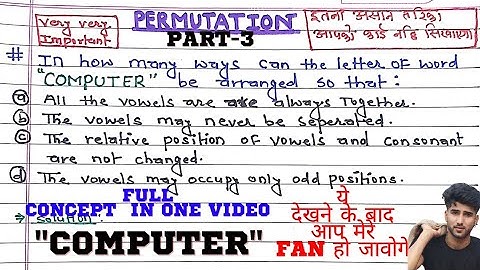 Very very
Important
PERMUTATION
PART-3
इतना असान तरिका
आपको कोई नहि सिखाएगा
# In how many ways can the letter of word
"COMPUTER" be arranged so that:
(a) All the vowels are are always together.
(b) The vowels may never be seperated.
(c) The relative position of vowels and consonant
are not changed.
(d) The vowels may occupy only odd positions.
→ Solution:
FULL
CONCEPT IN ONE VIDEO
"COMPUTER"
ये
देखने के बाद
आप मेरे
FAN हो जावोगे